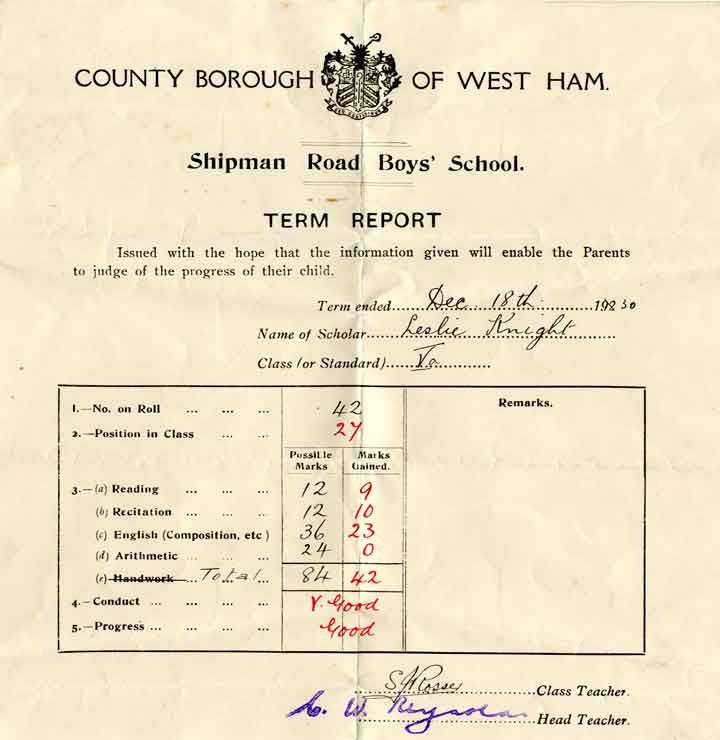 COUNTY BOROUGH OF WEST HAM.
Shipman Road Boys' School.
TERM REPORT
Issued with the hope that the information given will enable the Parents
to judge of the progress of their child.
Term ended......Dec. 18th............1930
Name of Scholar......Leslie Knight.........
Class (or Standard).....Va............
1.—No. on Roll ... ... ... 42
2.—Position in Class ... ... 27
Remarks.
Possible Marks Marks Gained.
3.—(a) Reading ... ... ... 12 9
(b) Recitation ... ... ... 12 10
(c) English (Composition, etc) 36 23
(d) Arithmetic ... ... ... 24 0
(e) Handwork ... Total ... 84 42
4.—Conduct ... ... ... V. Good
5.—Progress ... ... ... Good
Class Teacher.
C. W. Reynolds Head Teacher.